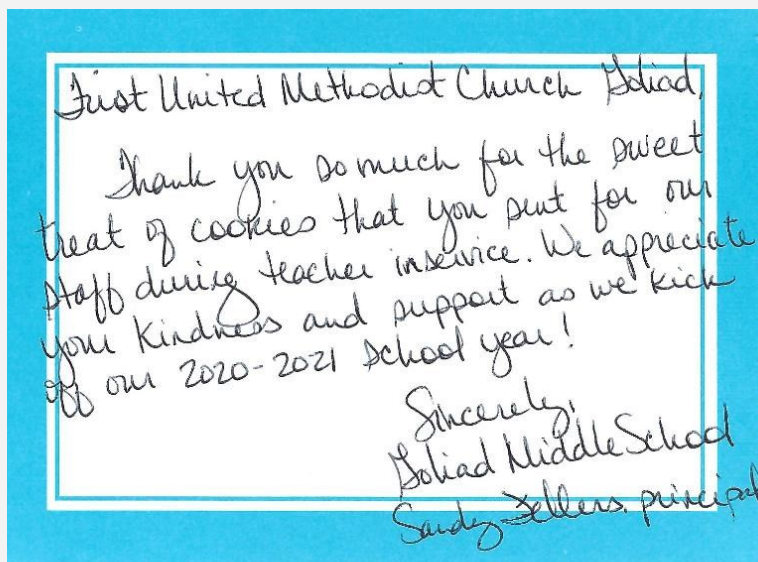 First United Methodist Church Goliad,
Thank you so much for the sweet
treat of cookies that you sent for our
staff during teacher inservice. We appreciate
your kindness and support as we kick
off our 2020-2021 school year!
Sincerely,
Goliad Middle School
Sandy Zellers, principal